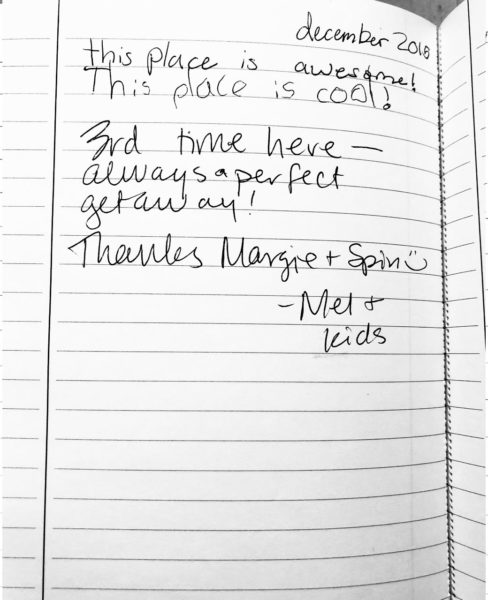 december 2018
this place is awesome!
This place is cool!
3rd time here —
always a perfect
getaway!
Thanks Margie + Spin☺
- Mel +
kids